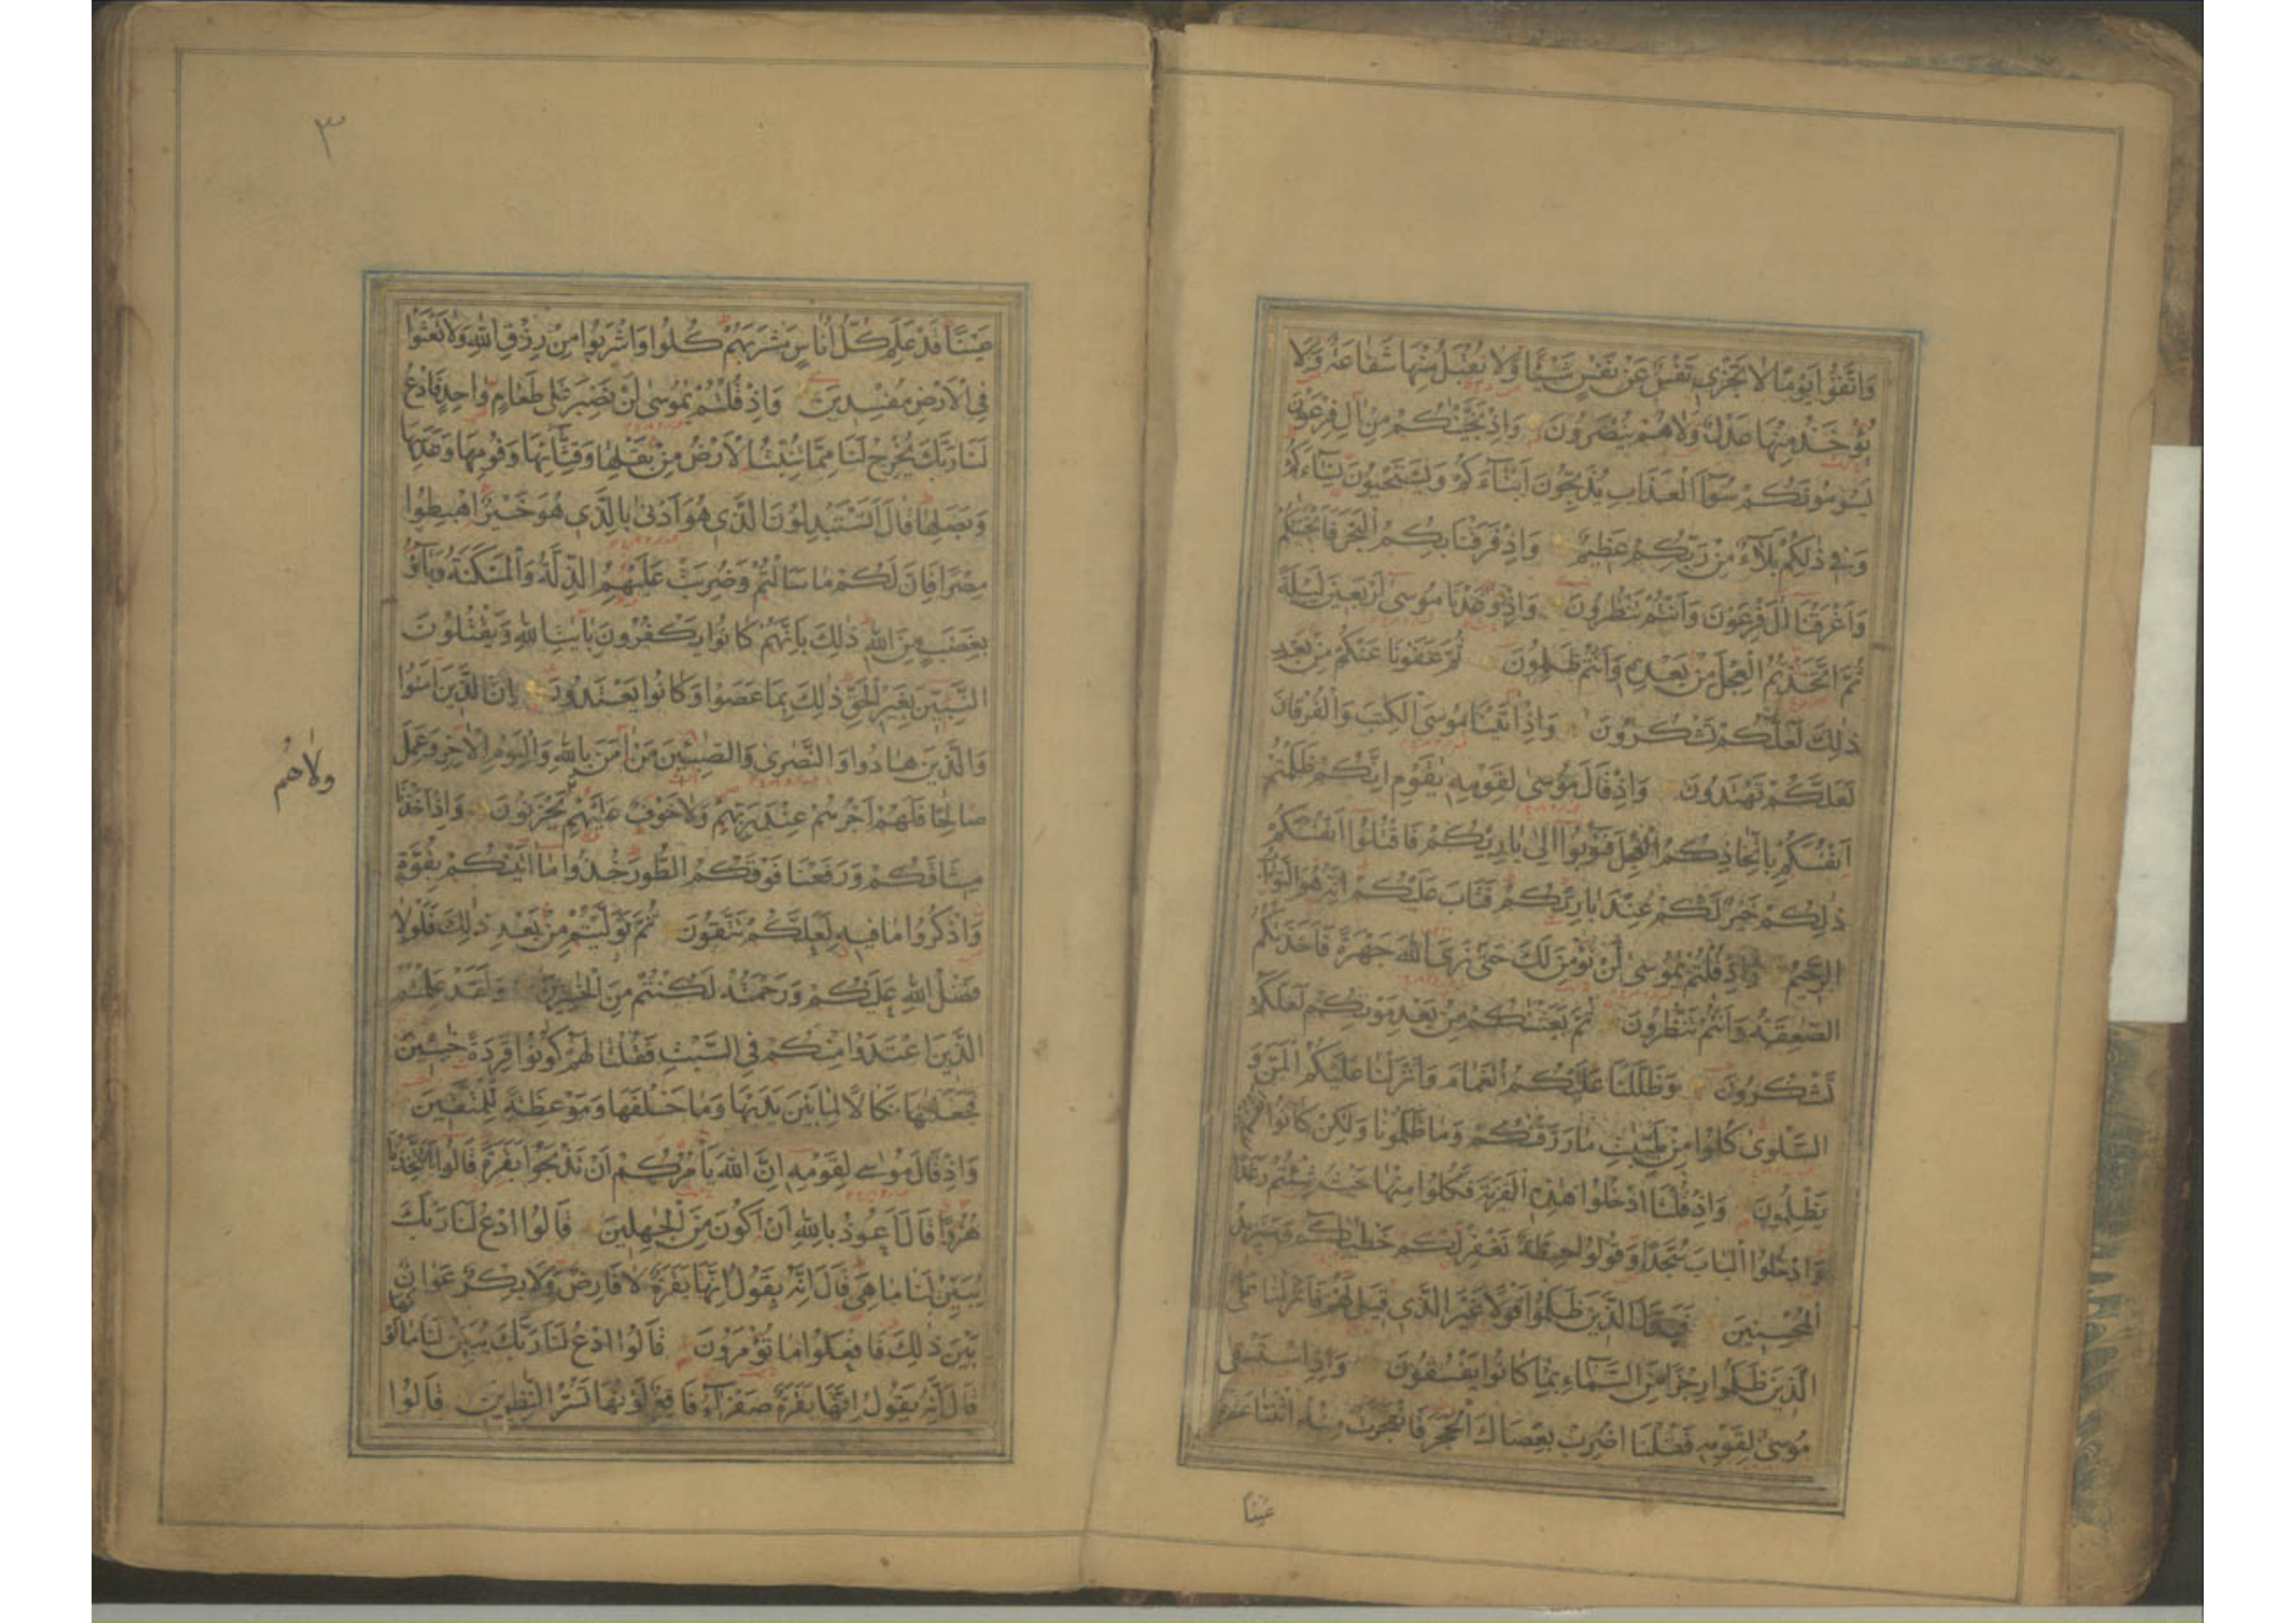 وَاتَّقُوا يَوْمًا لَا تَجْزِي نَفْسٌ عَنْ نَفْسٍ شَيْئًا وَلَا يُقْبَلُ مِنْهَا شَفَاعَةٌ وَلَا
يُؤْخَذُ مِنْهَا عَدْلٌ وَلَا هُمْ يُنْصَرُونَ وَاِذْ نَجَّيْنٰكُمْ مِنْ اٰلِ فِرْعَوْنَ
يَسُومُونَكُمْ سُوٓءَ الْعَذَابِ يُذَبِّحُونَ اَبْنَاۤءَكُمْ وَيَسْتَحْيُونَ نِسَاۤءَكُمْ
وَفِي ذٰلِكُمْ بَلَاۤءٌ مِنْ رَبِّكُمْ عَظِيمٌ وَاِذْ فَرَقْنَا بِكُمُ الْبَحْرَ فَاَنْجَيْنٰكُمْ
وَاَغْرَقْنَا اٰلَ فِرْعَوْنَ وَاَنْتُمْ تَنْظُرُونَ وَاِذْ وٰعَدْنَا مُوسٰى اَرْبَعِينَ لَيْلَةً
ثُمَّ اتَّخَذْتُمُ الْعِجْلَ مِنْ بَعْدِهِ وَاَنْتُمْ ظٰلِمُونَ ثُمَّ عَفَوْنَا عَنْكُمْ مِنْ بَعْدِ
ذٰلِكَ لَعَلَّكُمْ تَشْكُرُونَ وَاِذْ اٰتَيْنَا مُوسَى الْكِتٰبَ وَالْفُرْقَانَ
لَعَلَّكُمْ تَهْتَدُونَ وَاِذْ قَالَ مُوسٰى لِقَوْمِهِ يٰقَوْمِ اِنَّكُمْ ظَلَمْتُمْ
اَنْفُسَكُمْ بِاتِّخَاذِكُمُ الْعِجْلَ فَتُوبُوٓا اِلٰى بَارِئِكُمْ فَاقْتُلُوٓا اَنْفُسَكُمْ
ذٰلِكُمْ خَيْرٌ لَكُمْ عِنْدَ بَارِئِكُمْ فَتَابَ عَلَيْكُمْ اِنَّهُ هُوَ التَّوَّابُ
الرَّحِيمُ وَاِذْ قُلْتُمْ يٰمُوسٰى لَنْ نُؤْمِنَ لَكَ حَتّٰى نَرَى اللّٰهَ جَهْرَةً فَاَخَذَتْكُمُ
الصّٰعِقَةُ وَاَنْتُمْ تَنْظُرُونَ ثُمَّ بَعَثْنٰكُمْ مِنْ بَعْدِ مَوْتِكُمْ لَعَلَّكُمْ
تَشْكُرُونَ وَظَلَّلْنَا عَلَيْكُمُ الْغَمَامَ وَاَنْزَلْنَا عَلَيْكُمُ الْمَنَّ وَ
السَّلْوٰى كُلُوا مِنْ طَيِّبٰتِ مَا رَزَقْنٰكُمْ وَمَا ظَلَمُونَا وَلٰكِنْ كَانُوٓا اَنْفُسَهُمْ
يَظْلِمُونَ وَاِذْ قُلْنَا ادْخُلُوا هٰذِهِ الْقَرْيَةَ فَكُلُوا مِنْهَا حَيْثُ شِئْتُمْ رَغَدًا
وَادْخُلُوا الْبَابَ سُجَّدًا وَقُولُوا حِطَّةٌ نَغْفِرْ لَكُمْ خَطٰيٰكُمْ وَسَنَزِيدُ
الْمُحْسِنِينَ فَبَدَّلَ الَّذِينَ ظَلَمُوا قَوْلًا غَيْرَ الَّذِي قِيلَ لَهُمْ فَاَنْزَلْنَا عَلَى
الَّذِينَ ظَلَمُوا رِجْزًا مِنَ السَّمَاۤءِ بِمَا كَانُوا يَفْسُقُونَ وَاِذِ اسْتَسْقٰى
مُوسٰى لِقَوْمِهِ فَقُلْنَا اضْرِبْ بِعَصَاكَ الْحَجَرَ فَانْفَجَرَتْ مِنْهُ اثْنَتَا عَشْرَةَ
عَيْنًا
٣
عَيْنًا قَدْ عَلِمَ كُلُّ اُنَاسٍ مَشْرَبَهُمْ كُلُوا وَاشْرَبُوا مِنْ رِزْقِ اللّٰهِ وَلَا تَعْثَوْا
فِي الْاَرْضِ مُفْسِدِينَ وَاِذْ قُلْتُمْ يٰمُوسٰى لَنْ نَصْبِرَ عَلٰى طَعَامٍ وَاحِدٍ فَادْعُ
لَنَا رَبَّكَ يُخْرِجْ لَنَا مِمَّا تُنْبِتُ الْاَرْضُ مِنْ بَقْلِهَا وَقِثَّاۤئِهَا وَفُومِهَا وَعَدَسِهَا
وَبَصَلِهَا قَالَ اَتَسْتَبْدِلُونَ الَّذِي هُوَ اَدْنٰى بِالَّذِي هُوَ خَيْرٌ اِهْبِطُوا
مِصْرًا فَاِنَّ لَكُمْ مَا سَاَلْتُمْ وَضُرِبَتْ عَلَيْهِمُ الذِّلَّةُ وَالْمَسْكَنَةُ وَبَاۤؤُ
بِغَضَبٍ مِنَ اللّٰهِ ذٰلِكَ بِاَنَّهُمْ كَانُوا يَكْفُرُونَ بِاٰيٰتِ اللّٰهِ وَيَقْتُلُونَ
النَّبِيِّنَ بِغَيْرِ الْحَقِّ ذٰلِكَ بِمَا عَصَوْا وَكَانُوا يَعْتَدُونَ اِنَّ الَّذِينَ اٰمَنُوا
وَالَّذِينَ هَادُوا وَالنَّصٰرٰى وَالصّٰبِئِينَ مَنْ اٰمَنَ بِاللّٰهِ وَالْيَوْمِ الْاٰخِرِ وَعَمِلَ
ولاهُم
صَالِحًا فَلَهُمْ اَجْرُهُمْ عِنْدَ رَبِّهِمْ وَلَا خَوْفٌ عَلَيْهِمْ يَحْزَنُونَ وَاِذْ اَخَذْنَا
مِيثَاقَكُمْ وَرَفَعْنَا فَوْقَكُمُ الطُّورَ خُذُوا مَا اٰتَيْنٰكُمْ بِقُوَّةٍ
وَاذْكُرُوا مَا فِيهِ لَعَلَّكُمْ تَتَّقُونَ ثُمَّ تَوَلَّيْتُمْ مِنْ بَعْدِ ذٰلِكَ فَلَوْلَا
فَضْلُ اللّٰهِ عَلَيْكُمْ وَرَحْمَتُهُ لَكُنْتُمْ مِنَ الْخٰسِرِينَ وَلَقَدْ عَلِمْتُمُ
الَّذِينَ اعْتَدَوْا مِنْكُمْ فِي السَّبْتِ فَقُلْنَا لَهُمْ كُونُوا قِرَدَةً خٰسِئِينَ
فَجَعَلْنٰهَا نَكَالًا لِمَا بَيْنَ يَدَيْهَا وَمَا خَلْفَهَا وَمَوْعِظَةً لِلْمُتَّقِينَ
وَاِذْ قَالَ مُوسٰى لِقَوْمِهِ اِنَّ اللّٰهَ يَاْمُرُكُمْ اَنْ تَذْبَحُوا بَقَرَةً قَالُوا اَتَتَّخِذُنَا
هُزُوًا قَالَ اَعُوذُ بِاللّٰهِ اَنْ اَكُونَ مِنَ الْجٰهِلِينَ قَالُوا ادْعُ لَنَا رَبَّكَ
يُبَيِّنْ لَنَا مَا هِيَ قَالَ اِنَّهُ يَقُولُ اِنَّهَا بَقَرَةٌ لَا فَارِضٌ وَلَا بِكْرٌ عَوَانٌ
بَيْنَ ذٰلِكَ فَافْعَلُوا مَا تُؤْمَرُونَ قَالُوا ادْعُ لَنَا رَبَّكَ يُبَيِّنْ لَنَا مَا لَوْنُهَا
قَالَ اِنَّهُ يَقُولُ اِنَّهَا بَقَرَةٌ صَفْرَاۤءُ فَاقِعٌ لَوْنُهَا تَسُرُّ النّٰظِرِينَ قَالُوا